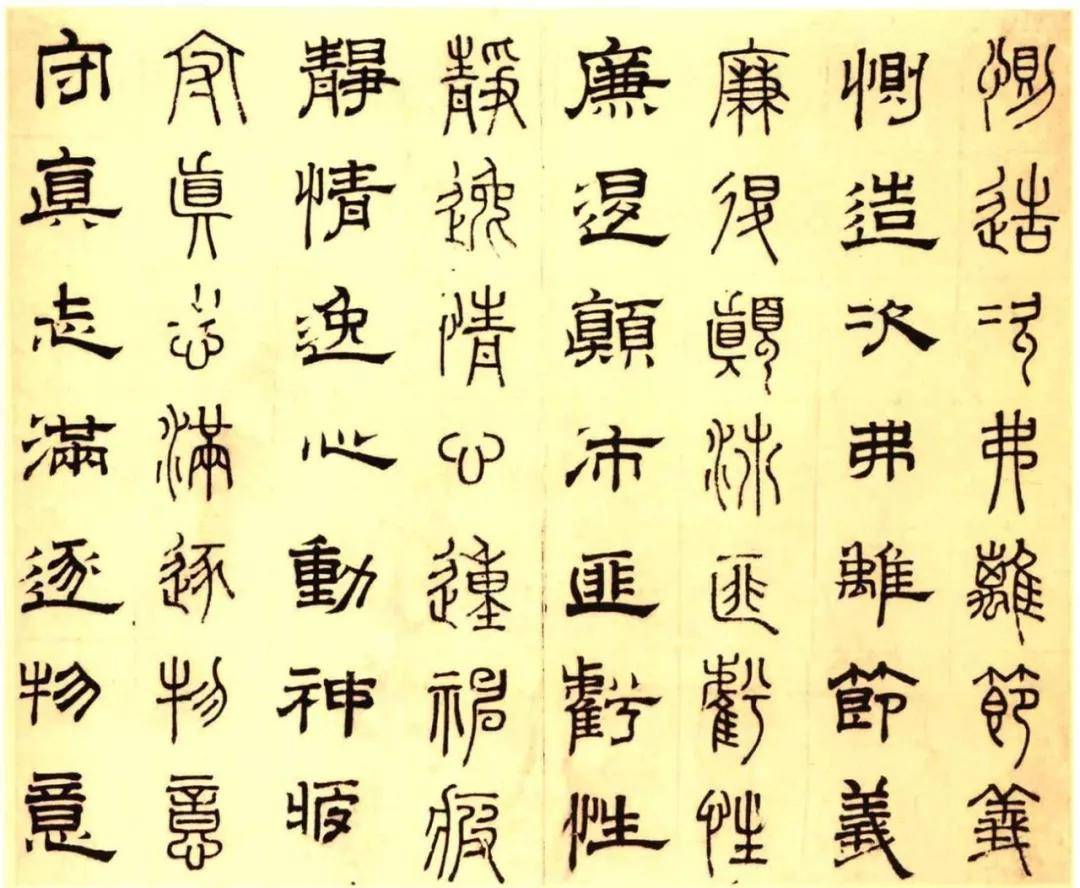 惻造次弗離節義
惻造次弗離節義
廉退顛沛匪虧性
廉退顛沛匪虧性
靜逸情心動神疲
靜情逸心動神疲
守真志滿逐物意
守真志滿逐物意